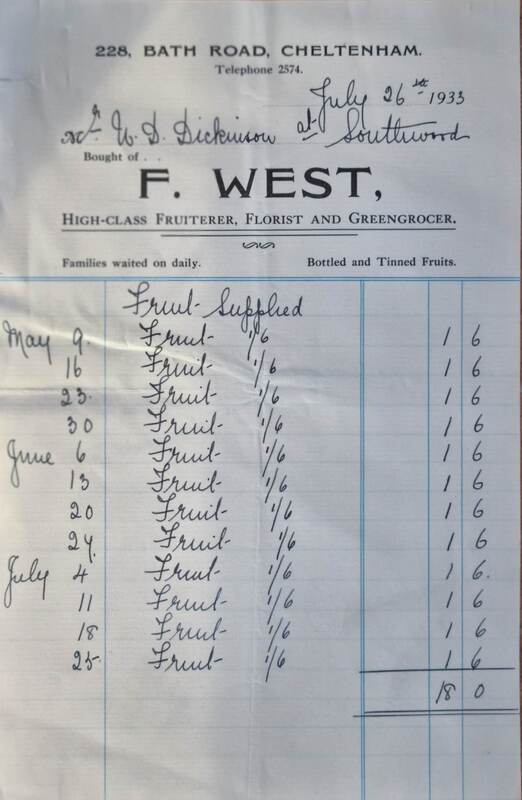 228, BATH ROAD, CHELTENHAM.
Telephone 2574.
July 26 1933
W. D. Dickinson at Southwood
Bought of . .
F. WEST,
HIGH-CLASS FRUITERER, FLORIST AND GREENGROCER.
Families waited on daily. Bottled and Tinned Fruits.
Fruit Supplied
May 9. Fruit 1/6 1 6
16 Fruit 1/6 1 6
23. Fruit 1/6 1 6
30 Fruit 1/6 1 6
June 6 Fruit 1/6 1 6
13 Fruit 1/6 1 6
20 Fruit 1/6 1 6
Fruit 1/6 1 6
July 4 Fruit 1/6 1 6.
11 Fruit 1/6 1 6
18 Fruit 1/6 1 6
25 Fruit 1/6 1 6
18 0